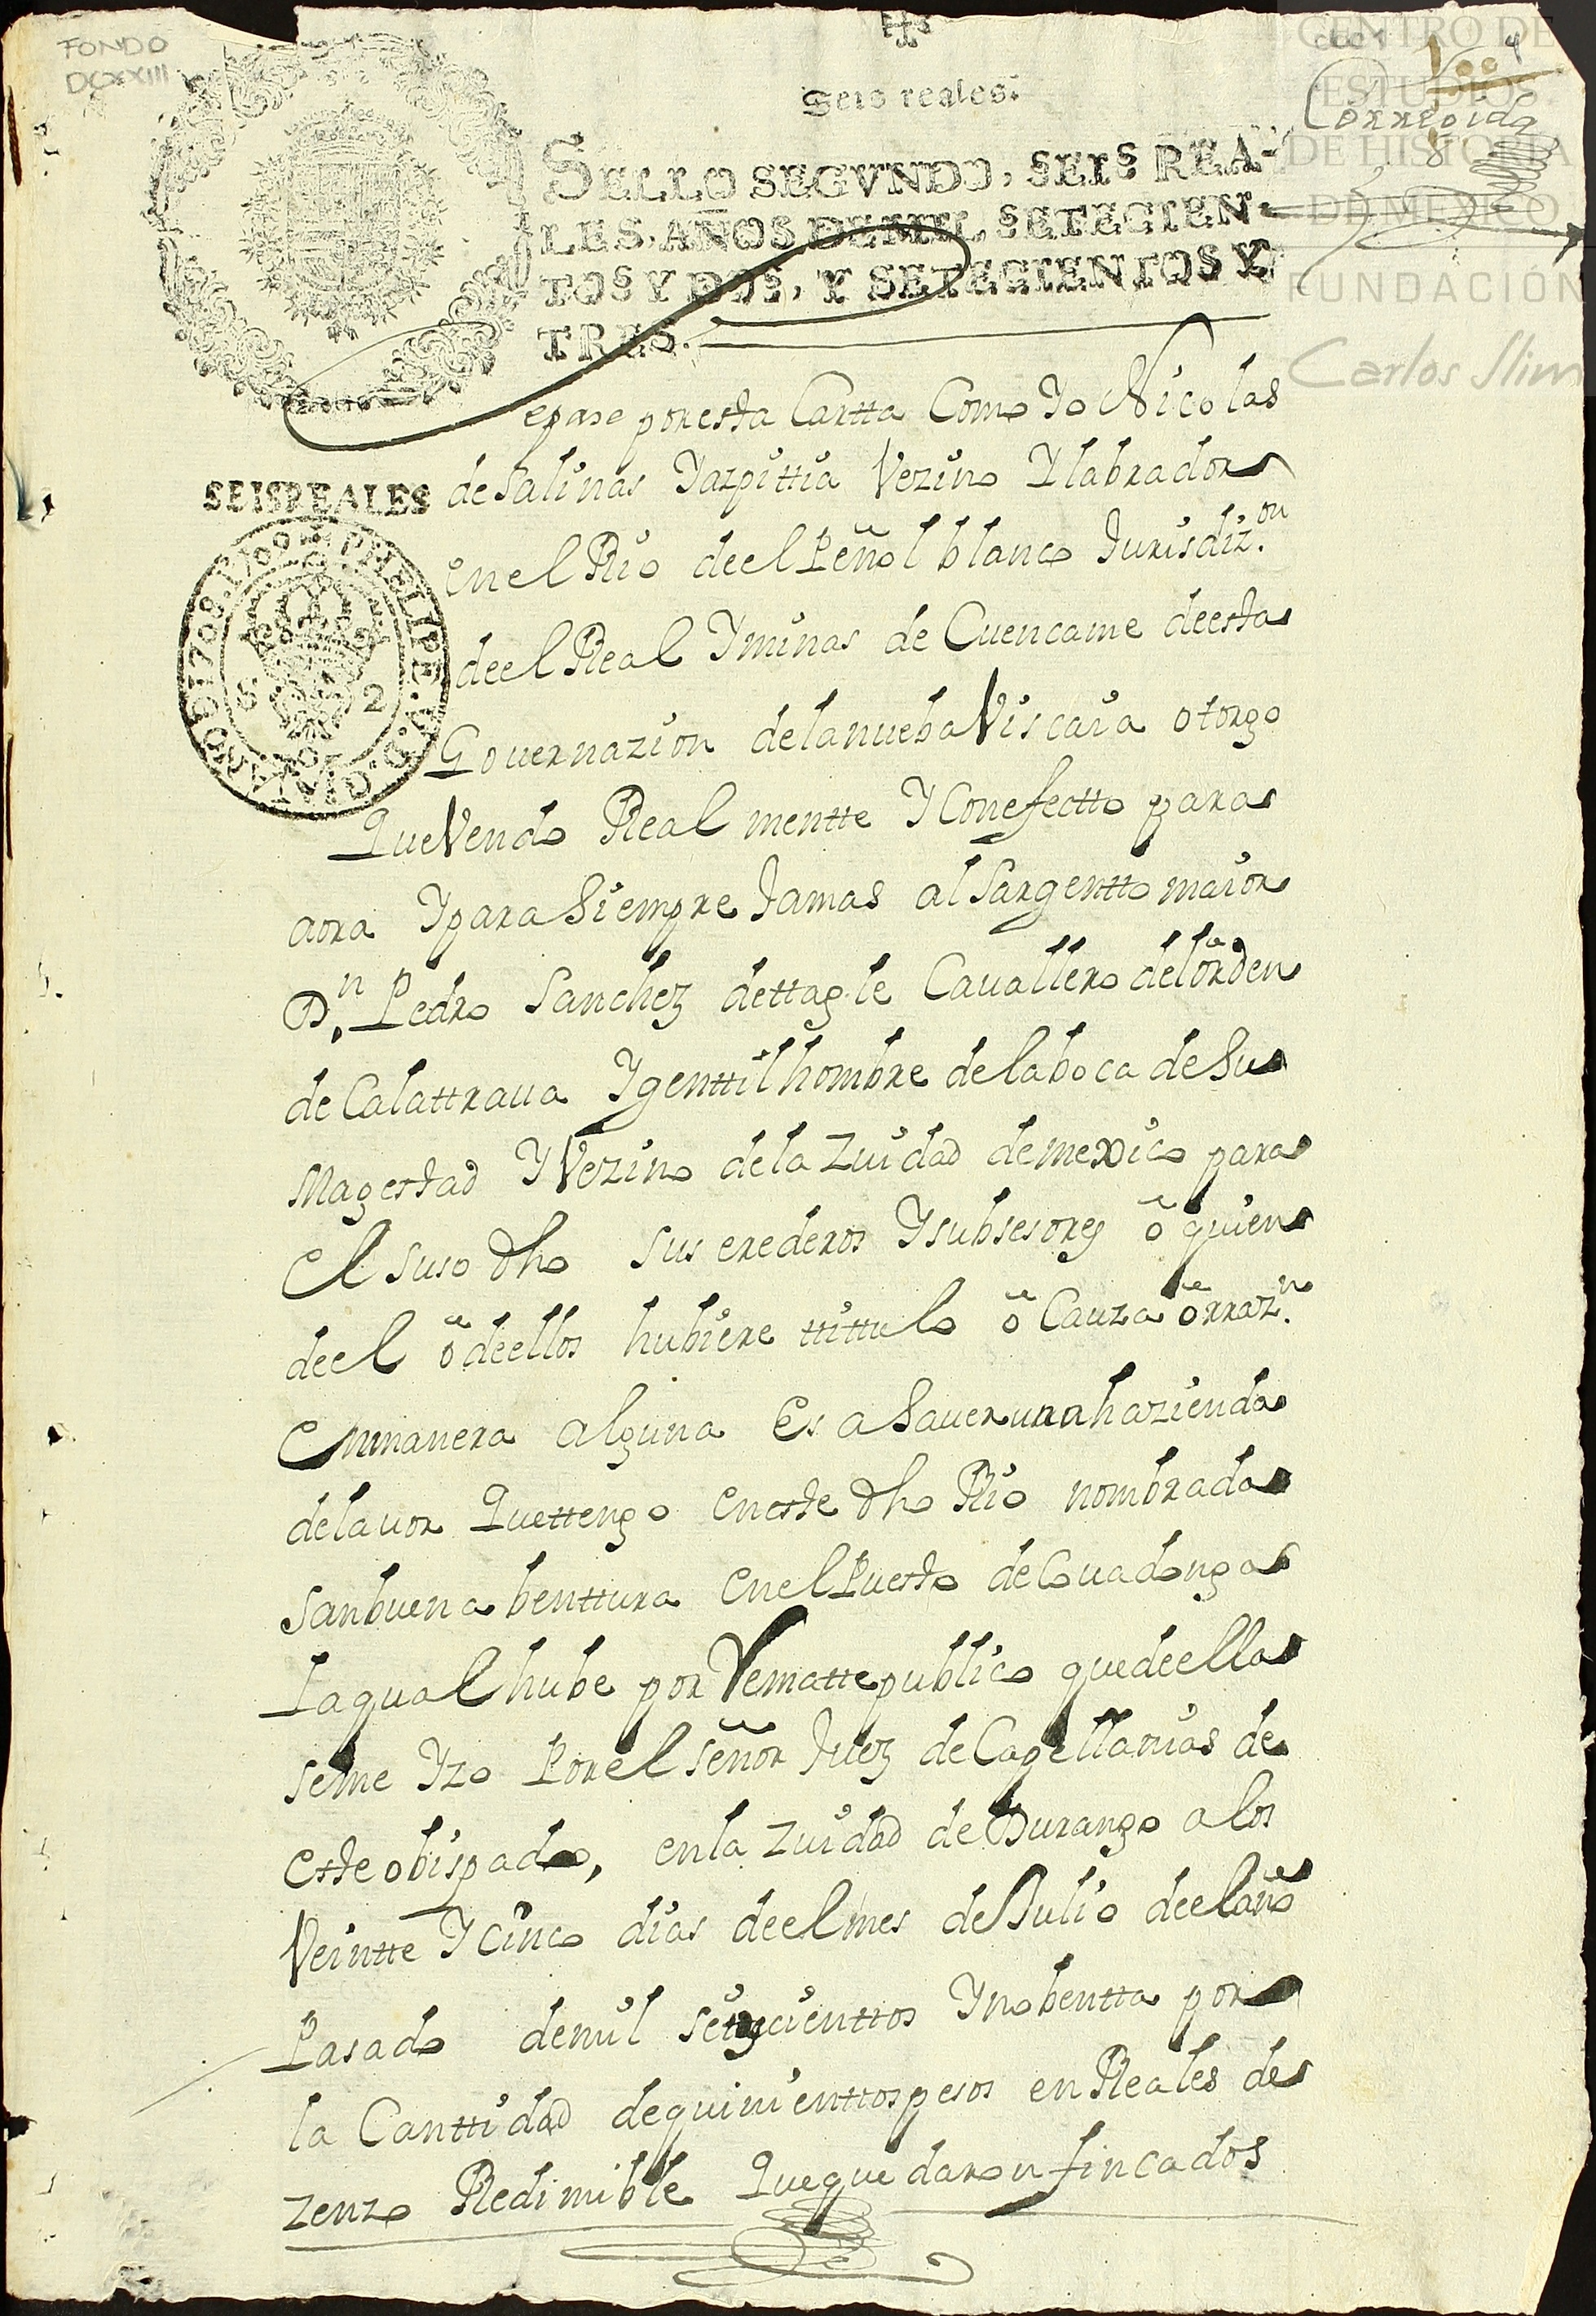 FONDO
DCXXIII
Seis reales.
SELLO SEGVNDO, SEIS REA-
LES, AÑOS DE MIL SETECIEN-
TOS Y DOS, Y SETECIENTOS Y
TRES.
Correxida
CENTRO DE
ESTUDIOS
DE HISTORIA
DE MEXICO
FUNDACIÓN
Carlos Slim
epase por esta Cartta Como Yo Nicolas
de Salinas Yazpittia Vezino Y labrador
en el Rio de el Peñol blanco Jurisdiz.on
SEISREALES
de el Real Y minas de Cuencame de esta
Governazion de la nueba Viscaia otorgo
Que Vendo Real mentte Y Con efectto para
aora Y para Siempre Jamas al Sargentto maior
D.n Pedro Sanchez de ttagle Cavallero del orden
de Calattrava Y genttil hombre de la boca de Su
Magestad Y Vezino de la Zuidad de mexico para
el suso dho sus erederos Y subsesores o quien
de el o de ellos hubiere tittulo o Cauza o rraz.n
en manera alguna Es a Saver una hazienda
de lavor Que ttengo en este dho Rio nombrada
San buena benttura en el Puesto de Covadonga
La qual hube por Rematte publico que de ella
se me Yzo Por el señor Juez de Capellanias de
este obispado, en la Zuidad de Durango a los
Veintte Y cinco dias de el mes de Julio de el año
Pasado de mil seiscienttos Y nobentta por
la Canttidad de quinienttos pesos en Reales de
zenzo Redimible Que quedaron fincados